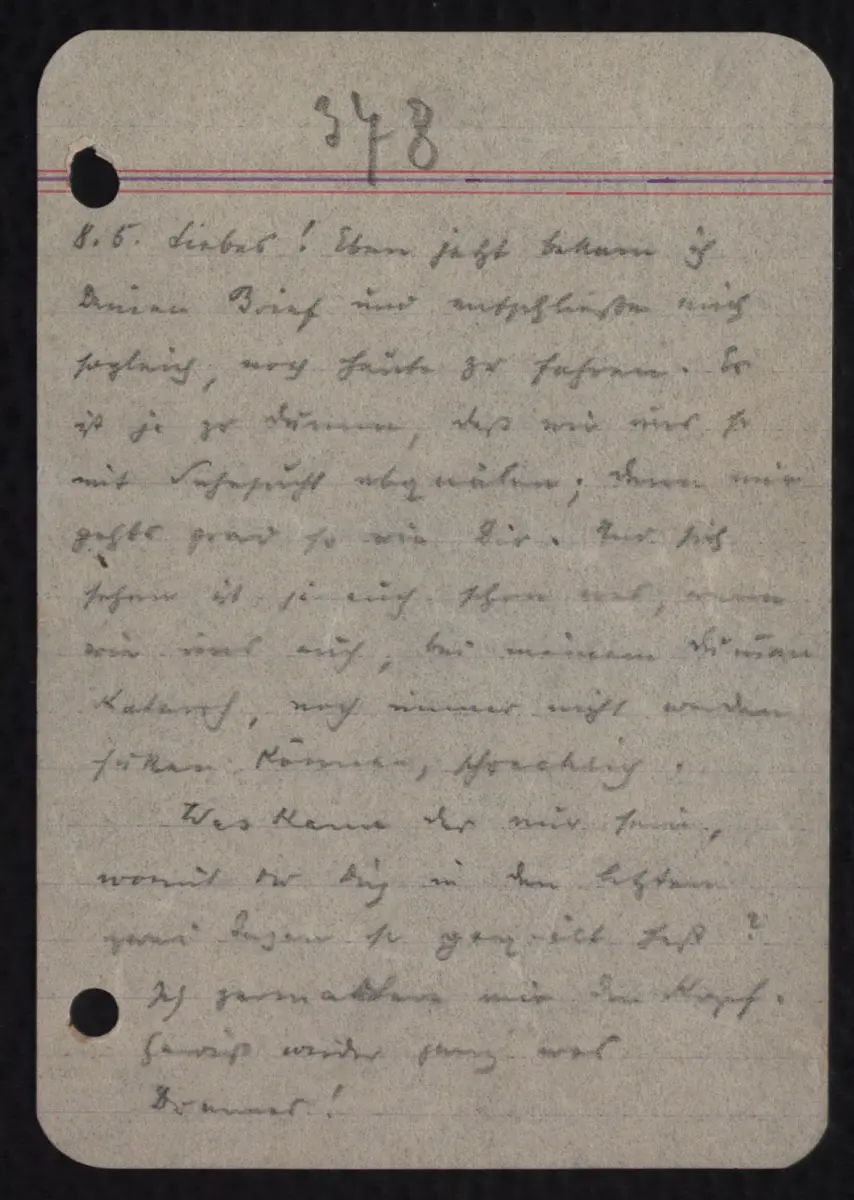 378
8.5. Liebes! Eben jetzt bekam ich
Deinen Brief und entschließe mich
sogleich, noch heute zu fahren. Es
ist ja zu dumm, daß wir uns so
mit Sehnsucht abquälen; denn mir
gehts grad so wie Dir. Und sich
sehen ist ja auch schon was, wenn
wir uns auch, bei meinem
Katarrh, noch immer nicht werden
können, schrecklich.
Was kann das nur sein,
womit Du Dich in den letzten
zwei Tagen so gequält hast?
Ich zermartere mir den Kopf.
Gewiß wieder ganz was
Dummes!